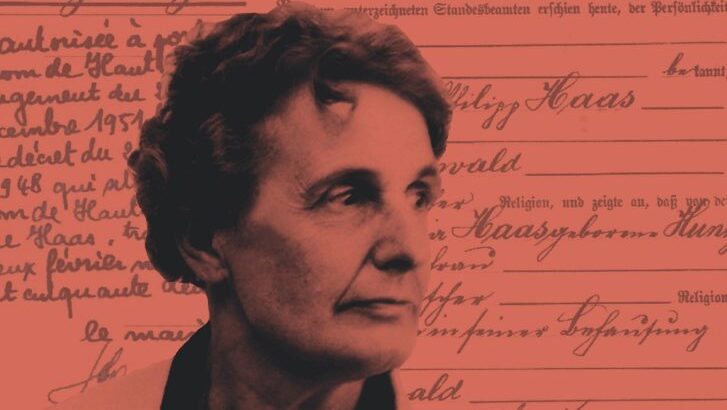 autorisée à por
om de Haut
ugement du
cembre 1951
décret du
948 qui
om de Haut
e Haas, tr
eux février
t cinquante deu
le mai
unterzeichneten Standesbeamten erschien heute, der Persönlichkeit
be kannt
Philipp Haas
wald
Religion, und zeigte an, daß von der
Haas geborene Hun
frau
Religion
in seiner Behausung
ald